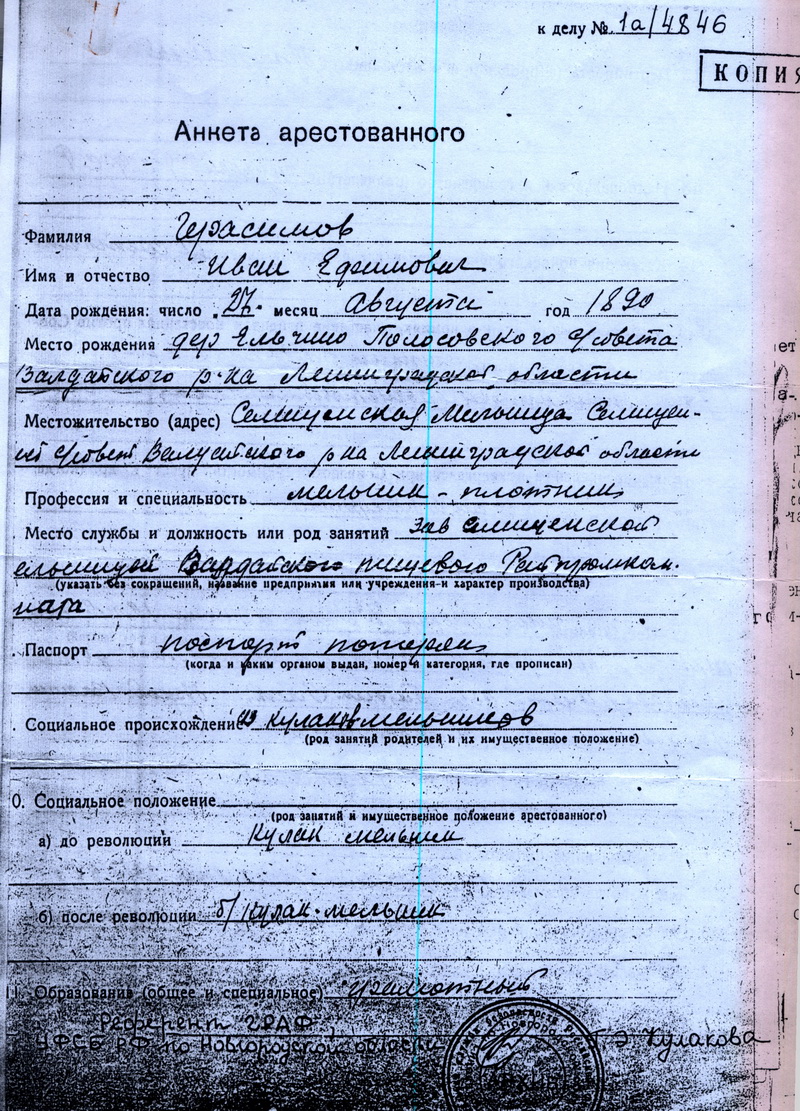 к делу № 1а/4846
КОПИЯ
Анкета арестованного
Фамилия Герасимов
Имя и отчество Иван Ефимович
Дата рождения: число „27" месяц Августа год 1890
Место рождения дер Ельчино Полосовского с/совета
Валдайского р-на Ленинградской области
Местожительство (адрес) Селищенская Мельница Селищен-
ий с/совет Валдайского р на Ленинградской области
Профессия и специальность мельник - плотник
Место службы и должность или род занятий зав селищенской
ельницей Валдайского пищевого Райпромком.
ната
(указать без сокращений, название предприятия или учреждения и характер производства)
. Паспорт поспорт потерян
(когда и каким органом выдан, номер и категория, где прописан)
. Социальное происхождение из кулаков мельников
(род занятий родителей и их имущественное положение)
0. Социальное положение
(род занятий и имущественное положение арестованного)
а) до революции кулак мельник
б) после революции б/ кулак-мельник
1. Образование (общее и специальное) грамотный
Референт ГРАФ
УФСБ РФ по Новгородской области Г Э Кулакова